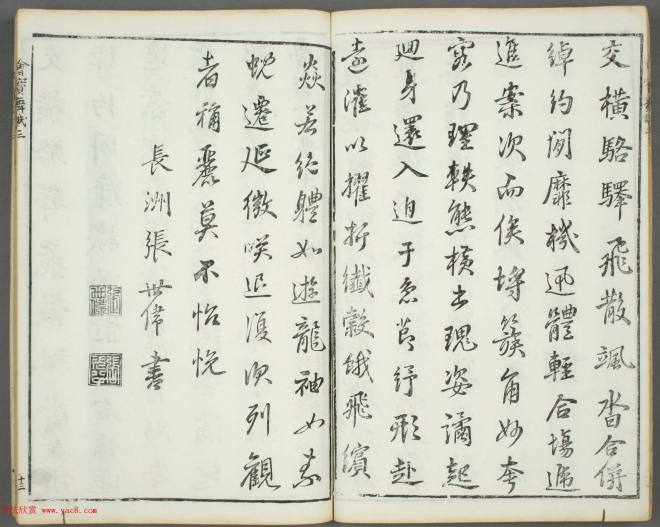 交橫駱驛飛散颯沓合併
綽約閒靡機迅體輕合場遞
進案次而俟埒簇角妙夸
容乃理軼態橫出瑰姿譎起
迴身還入迫于急節紆形赴
遠漼以摧折纖縠蛾飛繽
焱若絕體如遊龍袖如素
蜺遷延微咲退復次列觀
者稱麗莫不怡悅
長洲張世偉書
十三
法欣赏 www.yac8.com